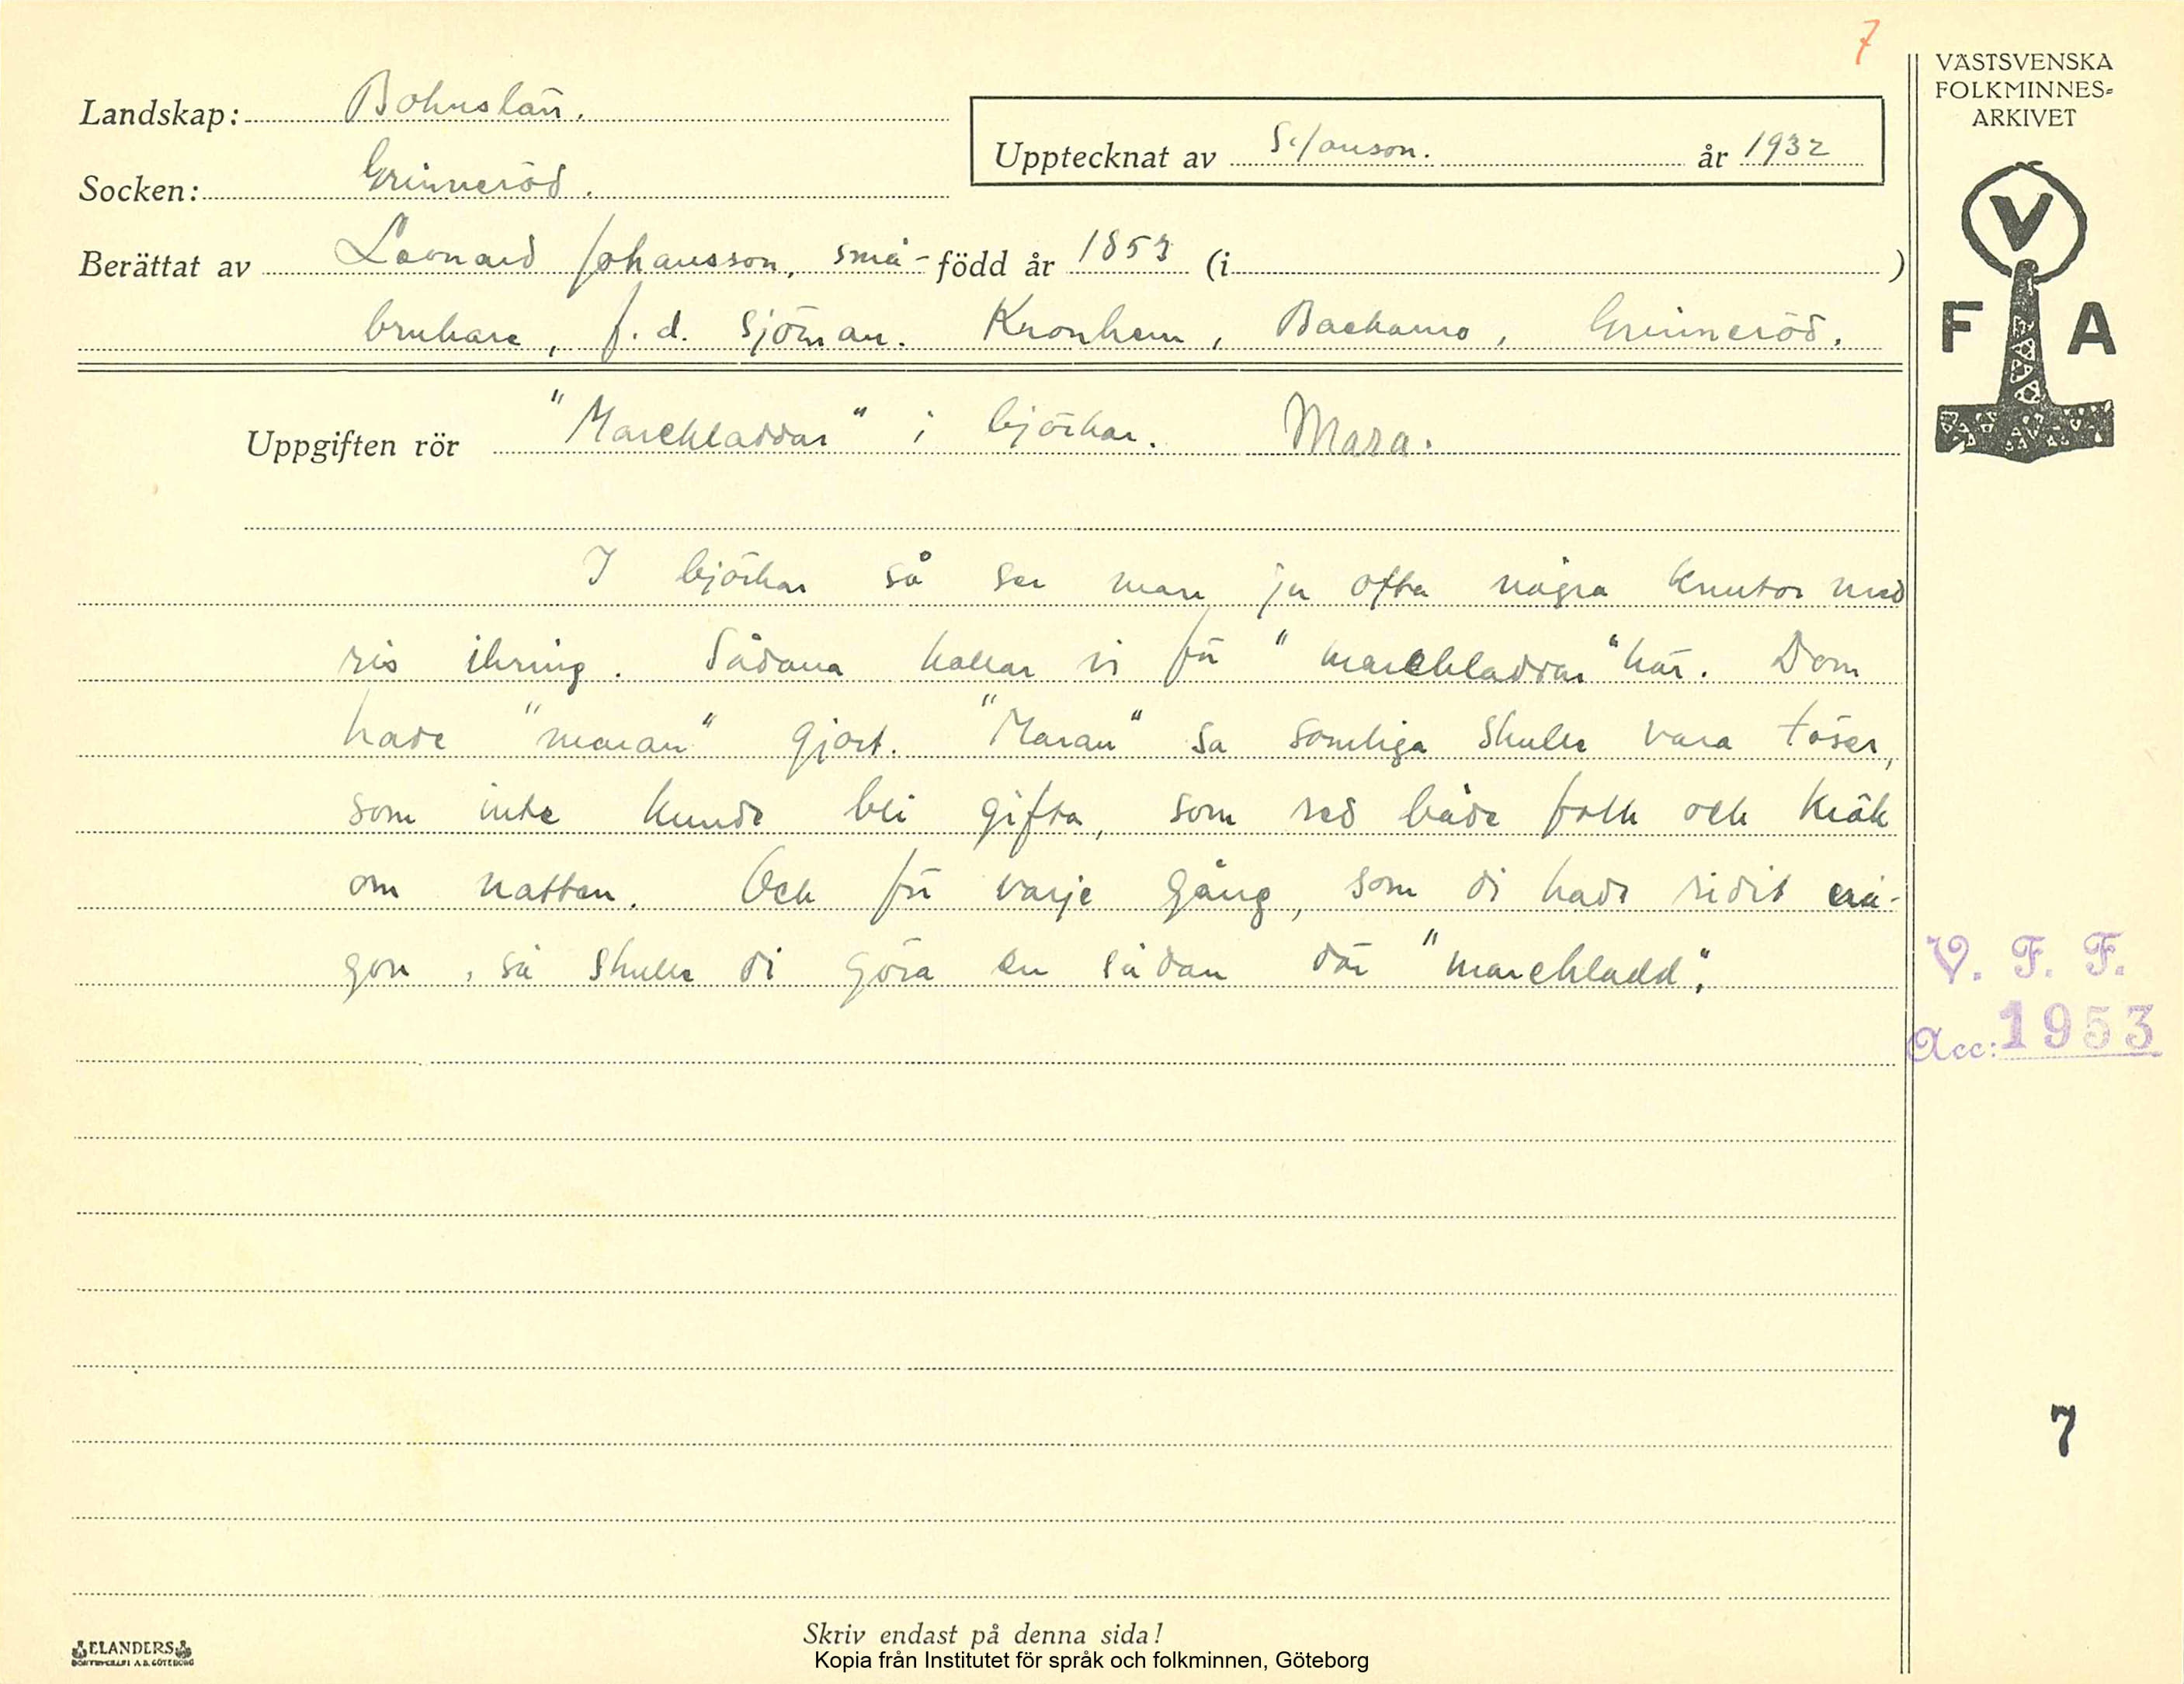 7
VÄSTSVENSKA
FOLKMINNES=
ARKIVET
Landskap: Bohuslän.
Upptecknat av S. Janson. år 1932
Socken: Grinneröd.
Berättat av Leonard Johansson, små- född år 1853 (i )
brukare, f. d. sjöman. Kronhem, Backamo, Grinneröd.
V
F A
Uppgiften rör "Marekladdar" i björkar. Mara.
I björkar så ser man ju ofta några knutor med
ris ikring. Sådana kallar vi för "marekladdar" här. Dom
hade "maran" gjort. "Maran" sa somliga skulle vara töser,
som inte kunde bli gifta, som red både folk och kräk
om natten. Och för varje gång, som di hade ridit erå-
gon, så skulle di göra en sådan där "marekladd".
V. F. F.
Acc: 1953
7
Skriv endast på denna sida!
ELANDERS
BOKTRYCKERI A.B. GÖTEBORG
Kopia från Institutet för språk och folkminnen, Göteborg